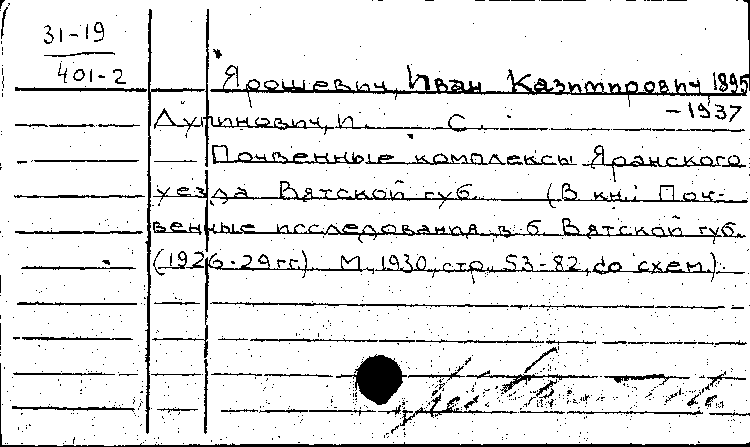 31-19
401-2
Ярошевич, Иван Казимирович 1895
-1937
Лупинович, И. С.
Почвенные комплексы Яранского
уезда Вятской губ. (В кн.: Поч-
венные исследования в б. Вятской губ.
(1926-29 гг.) М, 1930, стр. 53-82, со схем.).